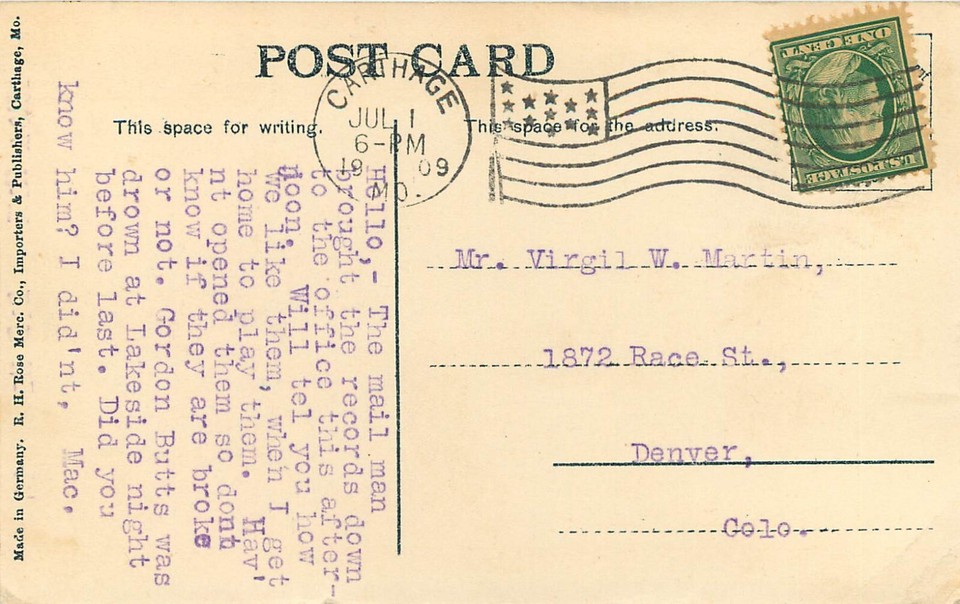 POST CARD
CARTHAGE
JUL 1
6-PM
1909
MO.
ONE CENT
U.S. POSTAGE
This space for writing.
This space for the address.
Hello,- The mail man
brought the records down
to the office this after-
noon. Will tel you how
we like them, when I get
home to play them. Hav'
nt opened them so dont
know if they are broke
or not. Gordon Butts was
drown at Lakeside night
before last. Did you
know him? I did'nt, Mac.
Mr. Virgil W. Martin,
1872 Race St.,
Denver,
Colo.
Made in Germany. R. H. Rose Merc. Co., Importers & Publishers, Carthage, Mo.